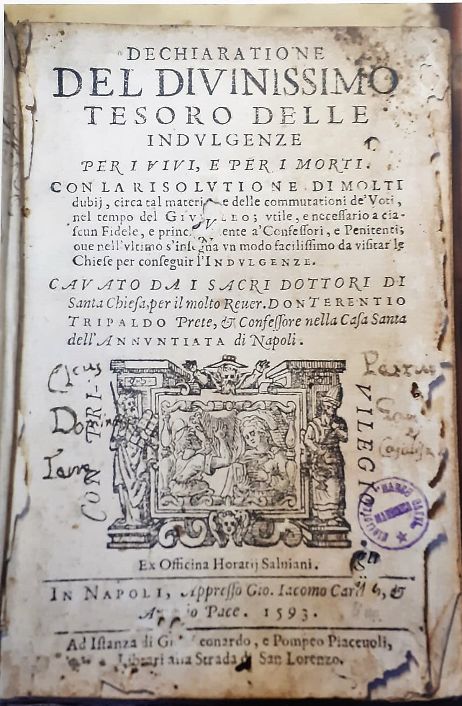 DECHIARATIONE
DEL DIVINISSIMO
TESORO DELLE
INDVLGENZE
PER I VIVI, E PER I MORTI.
CON LA RISOLVTIONE DI MOLTI
dubij, circa tal e delle commutationi de' Voti,
nel tempo del vtile, e necessario a cia-
scun Fidele, e a' Confessori, e Penitenti;
oue nell'vltimo s'insegna vn modo facilissimo da visitar le
Chiese per conseguir l'INDVLGENZE.
CAVATO DA I SACRI DOTTORI DI
Santa Chiesa, per il molto Reuer. DON TERENTIO
TRIPALDO Prete, & Confessore nella Casa Santa
dell'ANNVNTIATA di Napoli.
CON PRI-
VILEGIO
Ex Officina Horatij Saluiani.
IN NAPOLI, Appresso Gio. Iacomo &
Pace. 1593.
Ad Istanza di e Pompeo Piaceuoli,
Librari alla Strada di San Lorenzo.